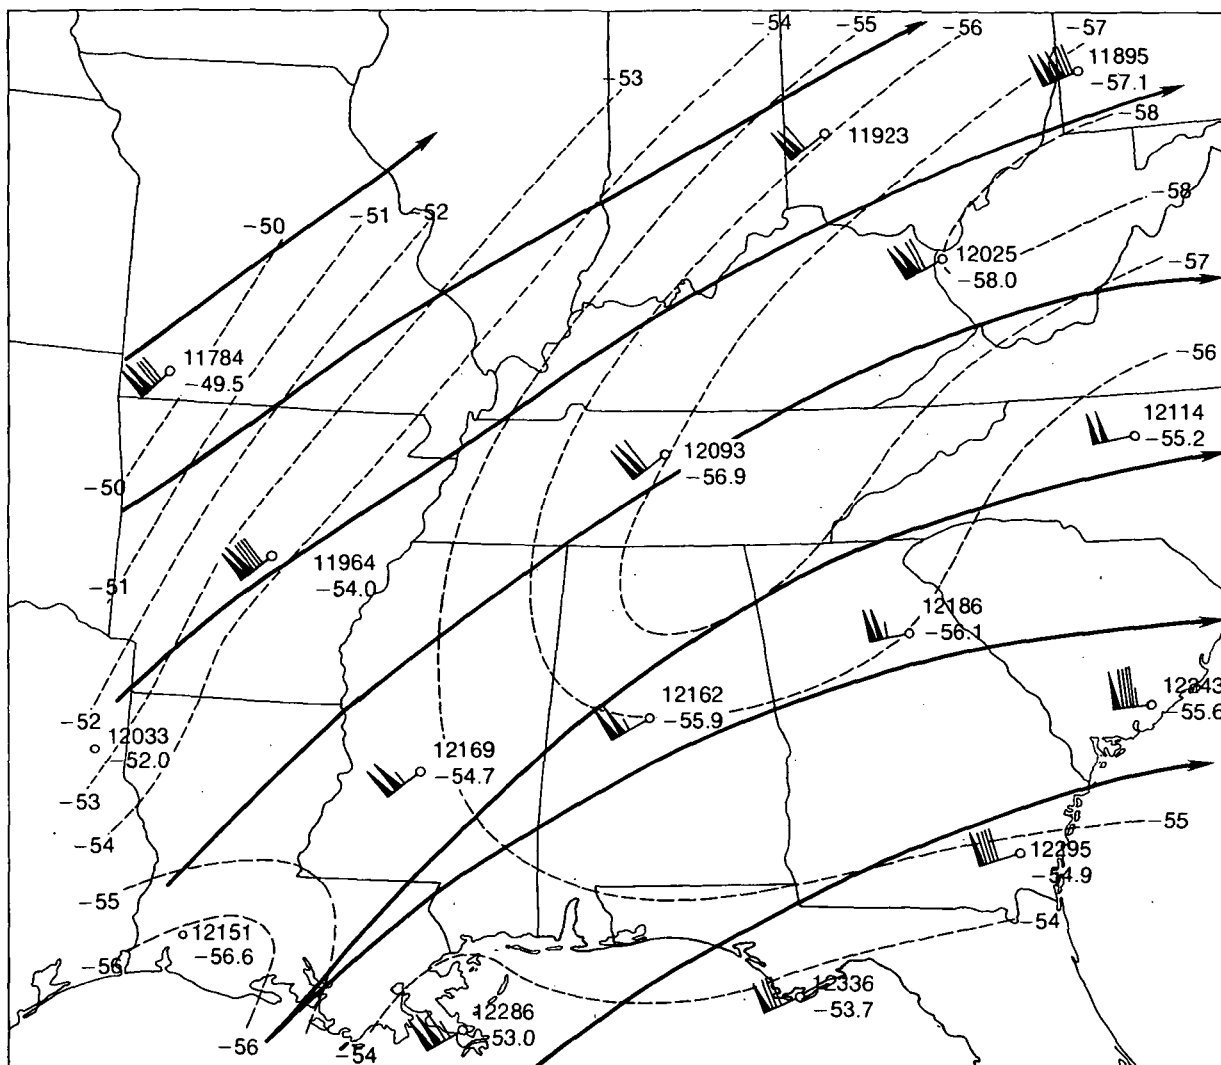 -54
-55
-56
-57
11895
-57.1
-53
-58
11923
-50
-51
-52
-58
12025
-58.0
-57
-56
11784
-49.5
12114
-55.2
12093
-56.9
-50
11964
-54.0
-51
12186
-56.1
12243
-55.6
-52
12033
-52.0
12162
-55.9
12169
-54.7
-53
-54
-55
12295
-54.9
-55
-54
12151
-56.6
-56
12336
-53.7
12286
-53.0
-56
-54